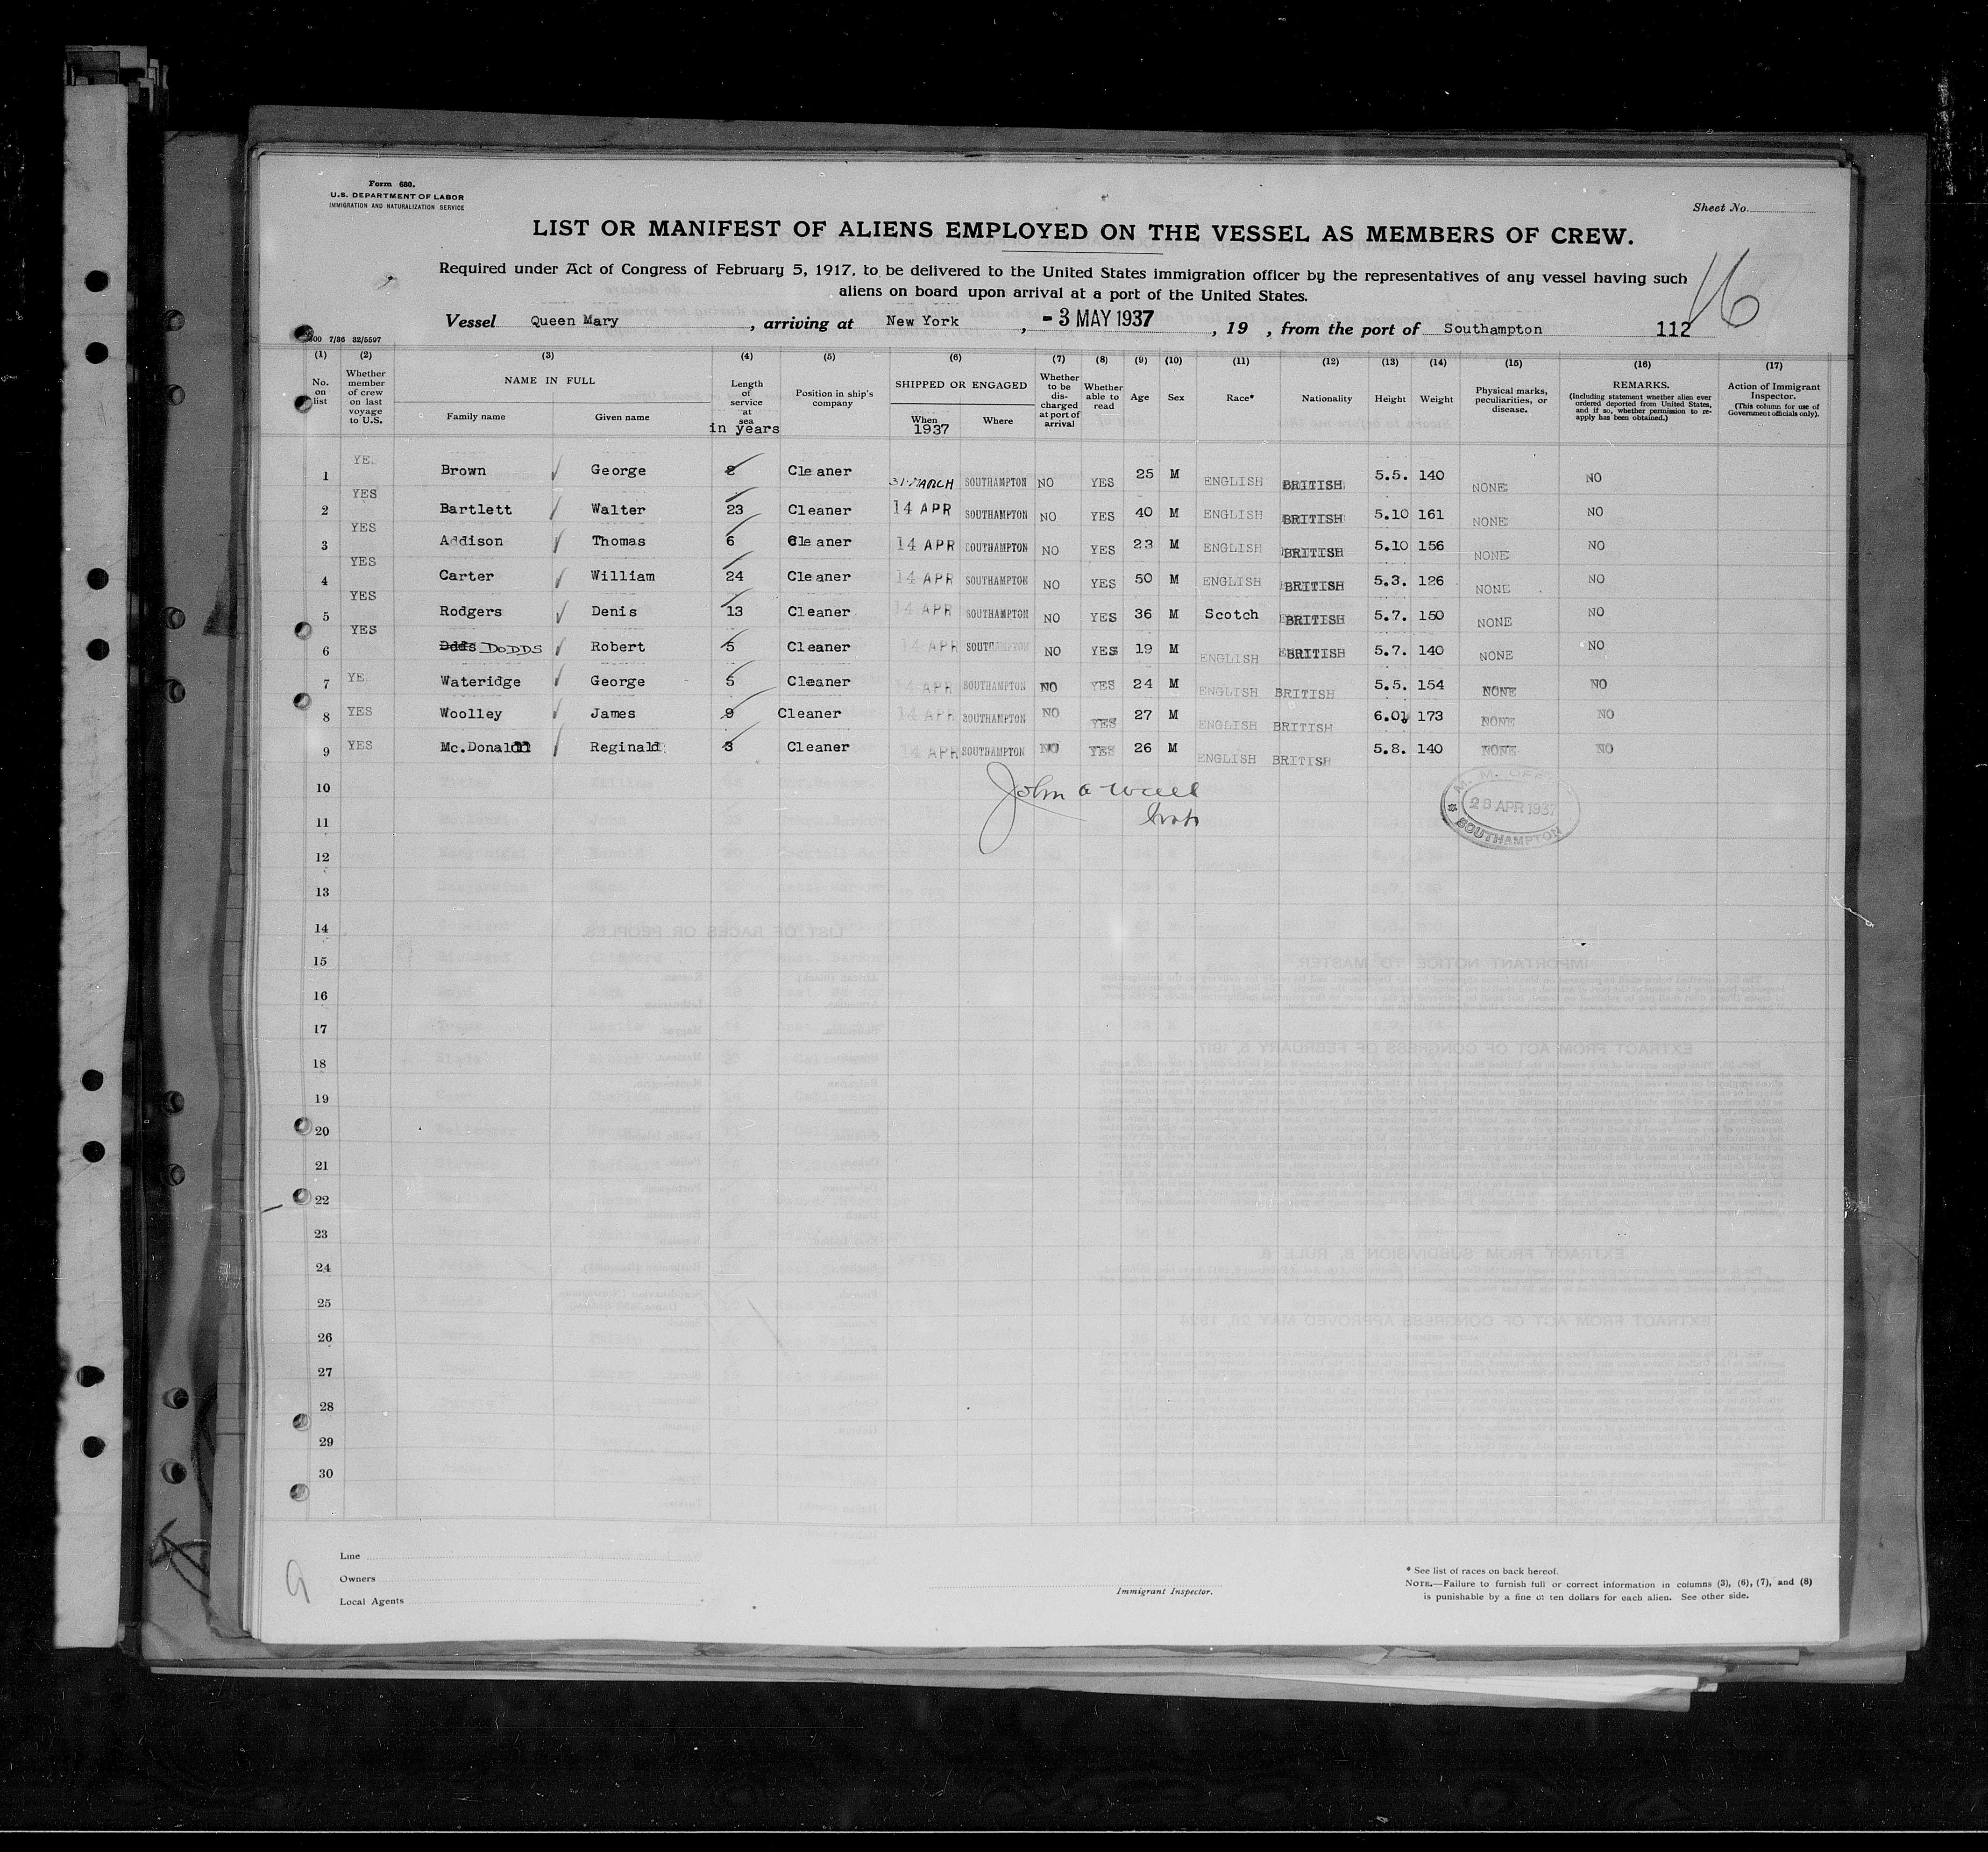 Form 680.
U.S. DEPARTMENT OF LABOR
IMMIGRATION AND NATURALIZATION SERVICE
Sheet No.
LIST OR MANIFEST OF ALIENS EMPLOYED ON THE VESSEL AS MEMBERS OF CREW.
Required under Act of Congress of February 5, 1917, to be delivered to the United States immigration officer by the representatives of any vessel having such
aliens on board upon arrival at a port of the United States.
16
Vessel Queen Mary, arriving at New York, - 3 MAY 1937, 19 , from the port of Southampton 112
7/36 32/5597
(1) (2) (3) (4) (5) (6) (7) (8) (9) (10) (11) (12) (13) (14) (15) (16) (17)
No. on list
Whether member of crew on last voyage to U.S.
NAME IN FULL
Family name Given name
Length of service at sea in years
Position in ship's company
SHIPPED OR ENGAGED
When 1937 Where
Whether to be discharged at port of arrival
Whether able to read
Age
Sex
Race*
Nationality
Height
Weight
Physical marks, peculiarities, or disease.
REMARKS.
(Including statement whether alien ever ordered deported from United States, and if so, whether permission to reapply has been obtained.)
Action of Immigrant Inspector.
(This column for use of Government officials only).
1 YE Brown George 2 Cleaner 31 MARCH SOUTHAMPTON NO YES 25 M ENGLISH BRITISH 5.5. 140 NONE NO
2 YES Bartlett Walter 23 Cleaner 14 APR SOUTHAMPTON NO YES 40 M ENGLISH BRITISH 5.10 161 NONE NO
3 YES Addison Thomas 6 Cleaner 14 APR SOUTHAMPTON NO YES 23 M ENGLISH BRITISH 5.10 156 NONE NO
4 YES Carter William 24 Cleaner 14 APR SOUTHAMPTON NO YES 50 M ENGLISH BRITISH 5.3. 126 NONE NO
5 YES Rodgers Denis 13 Cleaner 14 APR SOUTHAMPTON NO YES 36 M Scotch BRITISH 5.7. 150 NONE NO
6 YES Ddds DODDS Robert 5 Cleaner 14 APR SOUTHAMPTON NO YES 19 M ENGLISH BRITISH 5.7. 140 NONE NO
7 YE Wateridge George 5 Cleaner 14 APR SOUTHAMPTON NO YES 24 M ENGLISH BRITISH 5.5. 154 NONE NO
8 YES Woolley James 9 Cleaner 14 APR SOUTHAMPTON NO YES 27 M ENGLISH BRITISH 6.0½ 173 NONE NO
9 YES Mc.Donald Reginald 3 Cleaner 14 APR SOUTHAMPTON NO YES 26 M ENGLISH BRITISH 5.8. 140 NONE NO
10
John a
11
M. M. OFF
28 APR 1937
SOUTHAMPTON
12
13
14
15
16
17
18
19
20
21
22
23
24
25
26
27
28
29
30
9
Line
Owners
Local Agents
Immigrant Inspector.
* See list of races on back hereof.
NOTE.—Failure to furnish full or correct information in columns (3), (6), (7), and (8)
is punishable by a fine of ten dollars for each alien. See other side.